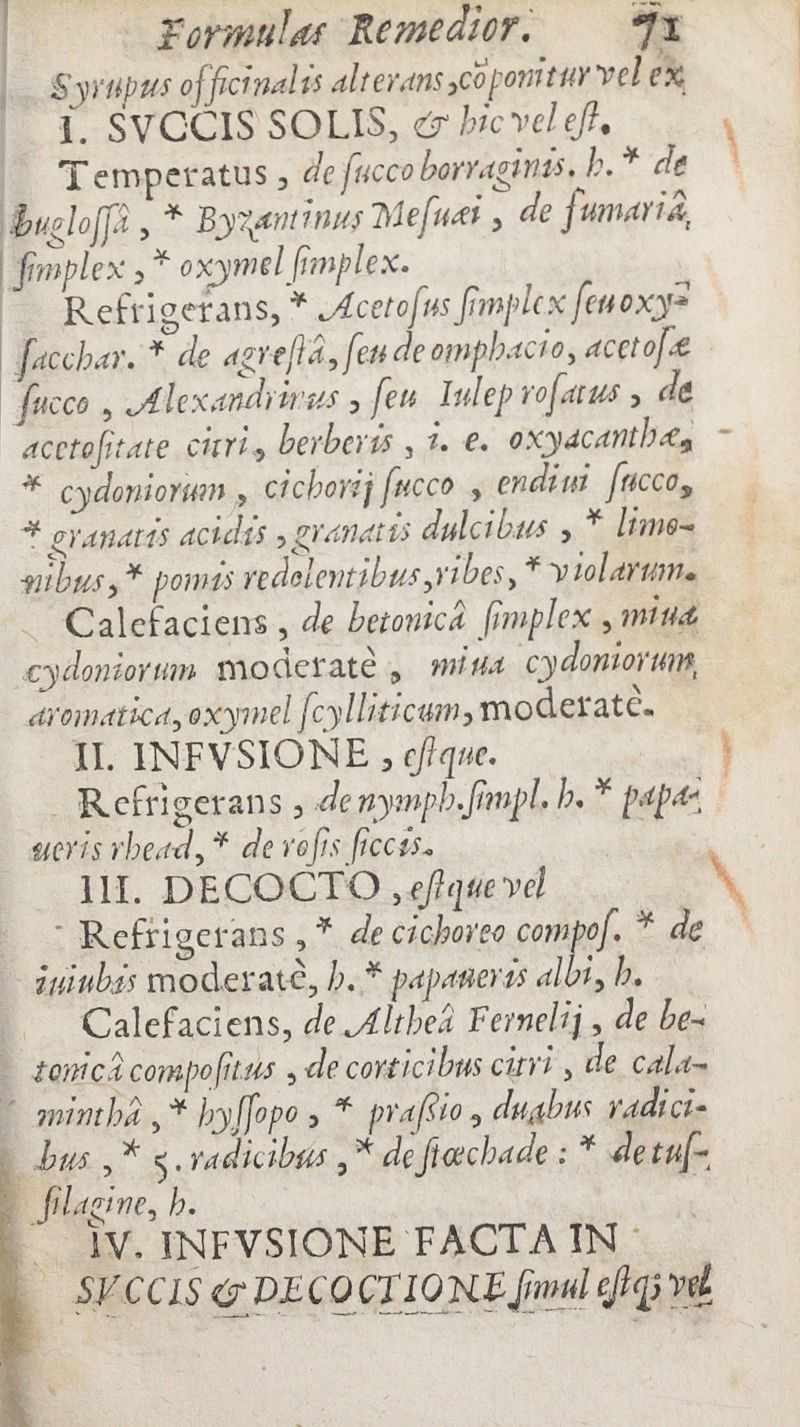 Formulas Remedior. 71
Syrupus officinalis alterans, cõponitur vel ex
I. SVCCIS SOLIS, & hic vel eſt.
Temperatus, de ſucco borraginis. h. * de
bugloſſâ, * Byzantinus Meſuæi, de fumariâ,
ſimplex, * oxymel ſimplex.
Refrigerans, * Acetoſus ſimplex ſeu oxy-
ſacchar. * de agreſtâ, ſeu de omphacio, acetoſæ
ſucco, Alexandrinus, ſeu Iulep roſatus, de
acetoſitate citri, berberis, i. e. oxyacanthæ,
* cydoniorum, cichorij ſucco, endiui ſucco,
* granatis acidis, granatis dulcibus, * limo-
nibus, * pomis redolentibus, ribes, * violarum.
Calefaciens, de betonicâ ſimplex, miua
cydoniorum moderatè, miua cydoniorum,
aromatica, oxymel ſcylliticum, moderatè.
II. INFVSIONE, eſtque.
Refrigerans, de nymph. ſimpl. h. * papa-
ueris rhead, * de roſis ſiccis.
III. DECOCTO, eſtque vel
Refrigerans, * de cichoreo compoſ. * de
iuiubis moderatè, h. * papaueris albi, h.
Calefaciens, de Altheâ Fernelij, de be-
tonicâ compoſitus, de corticibus citri, de cala-
minthâ, * hyſſopo, * praßio, duabus radici-
bus, * 5. radicibus, * de ſtœchade : * de tuſ-
ſilagine, h.
IV. INFVSIONE FACTA IN
SVCCIS & DECOCTIONE ſimul eſtq; vel